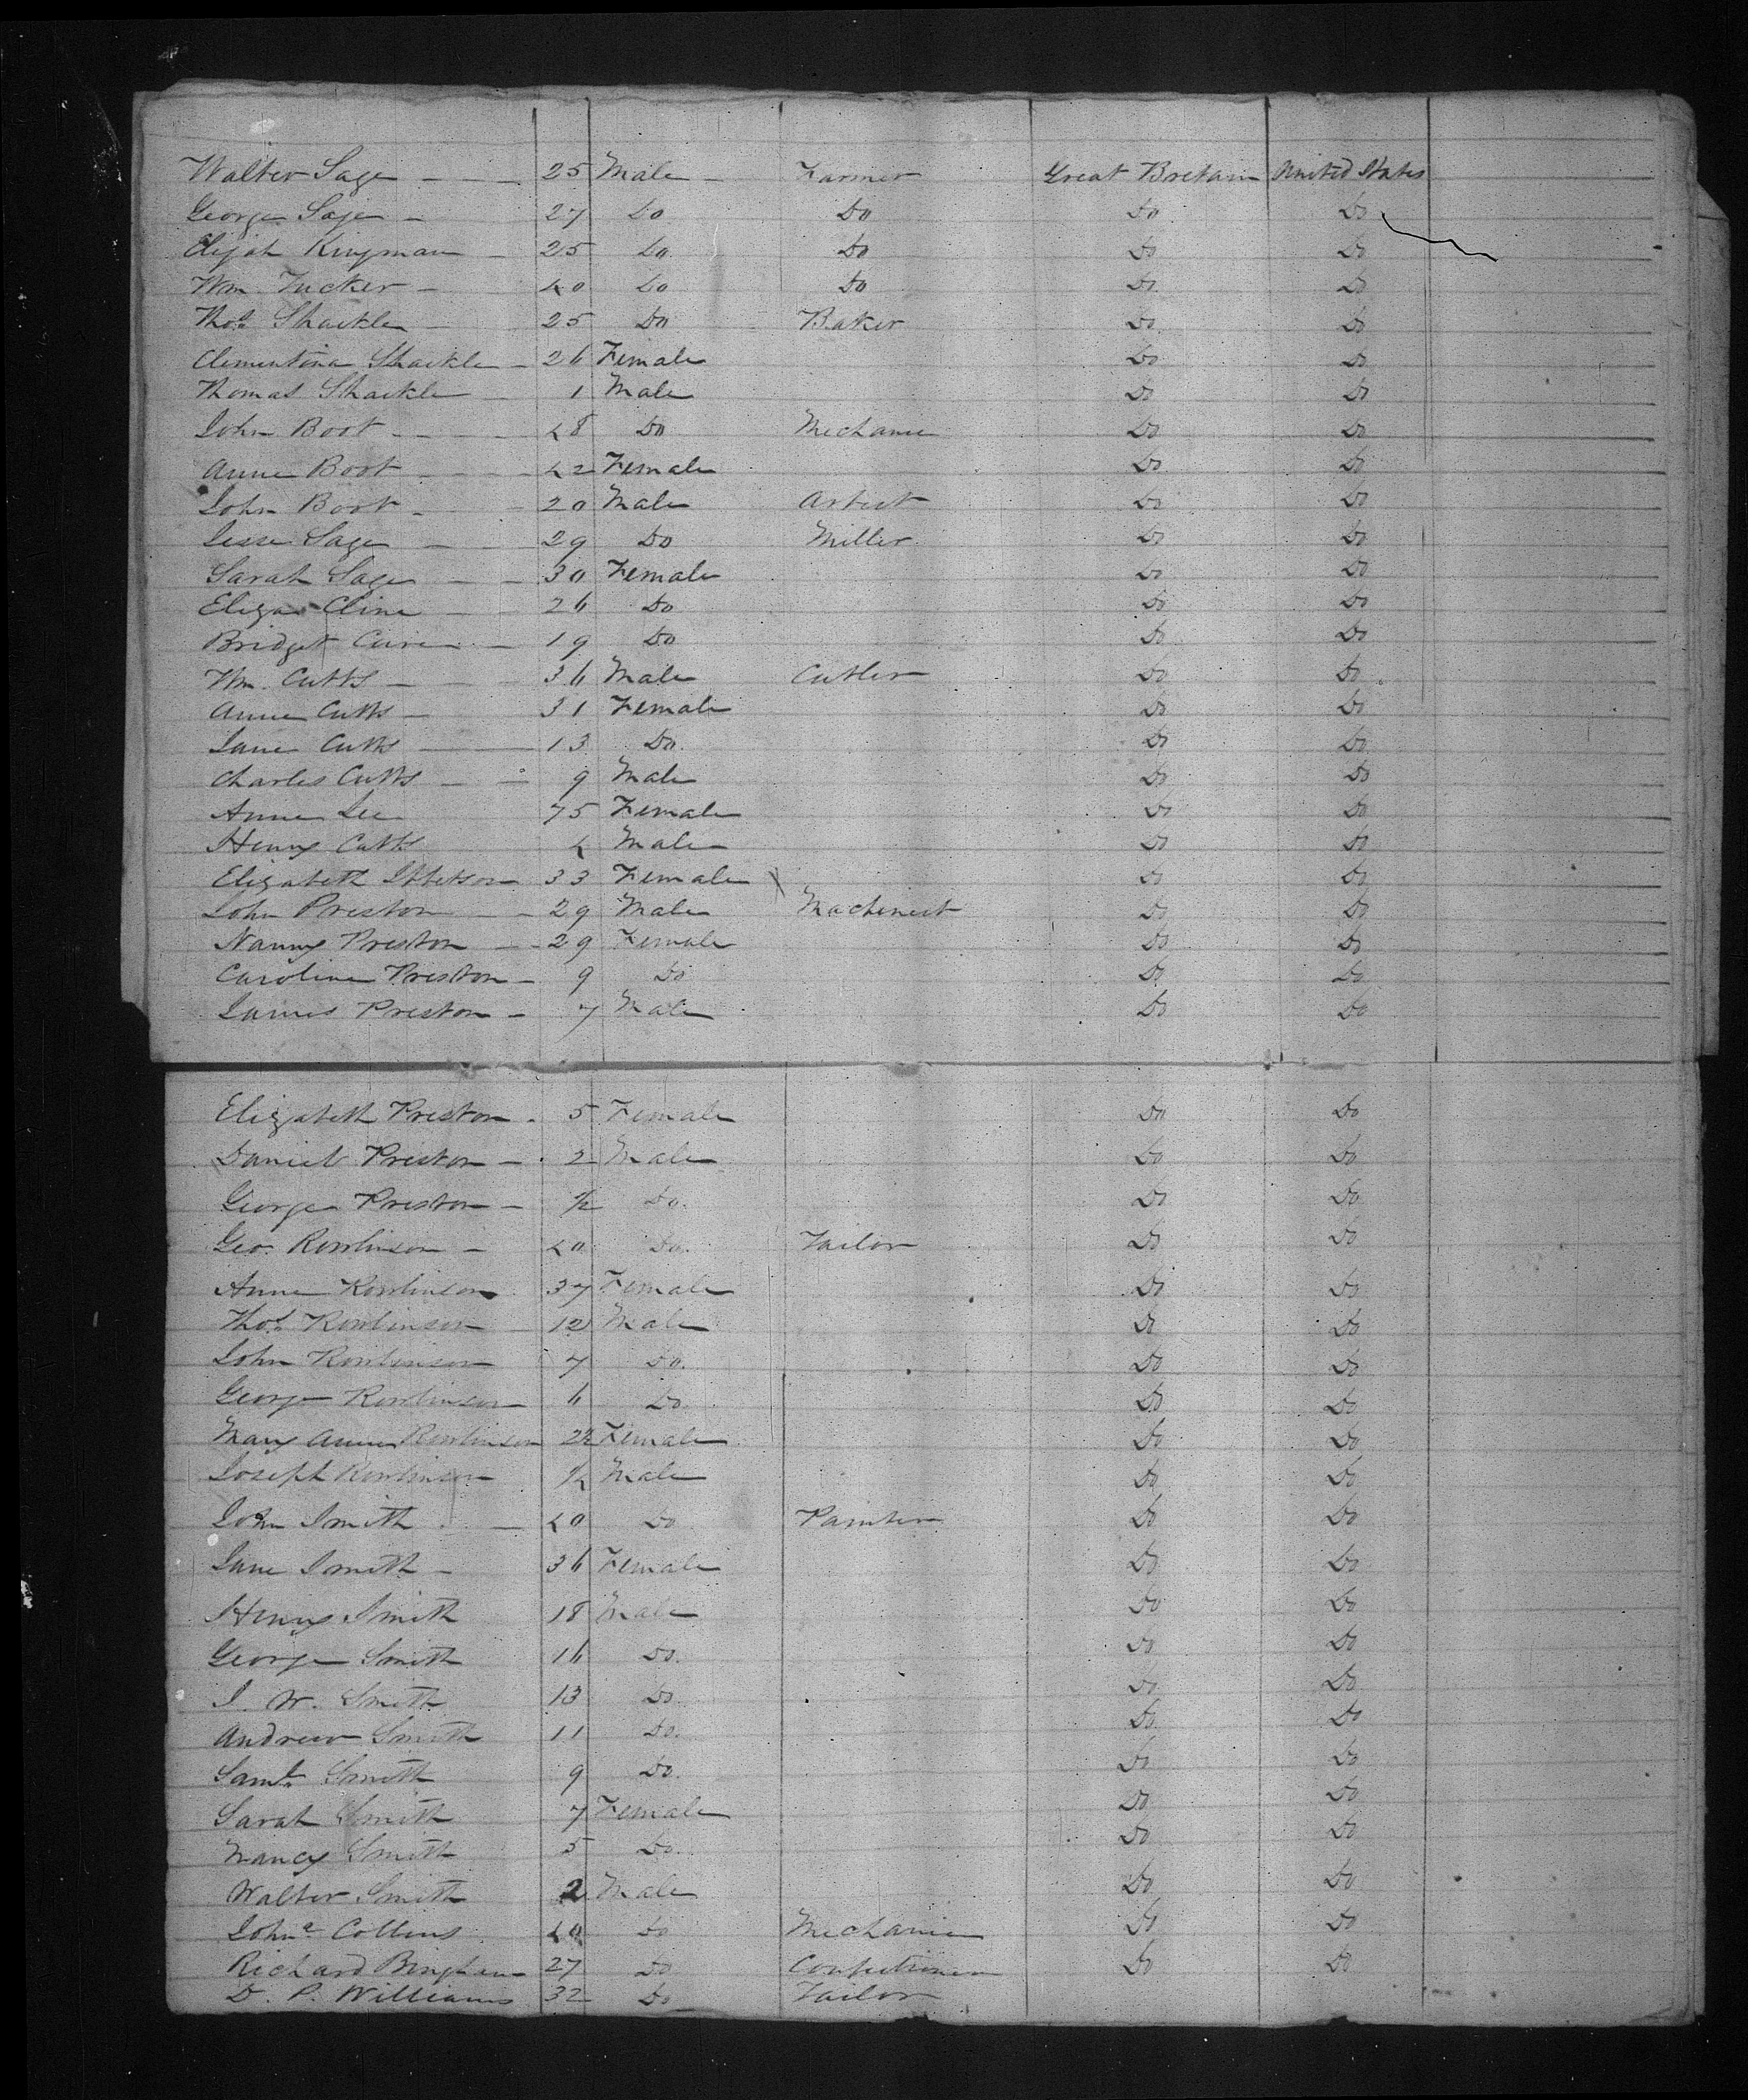 Walter Sage 25 Male Farmer Great Bretain United States
George Sage 27 Do Do Do Do
Elijah Kingman 25 Do Do Do Do
Wm. Tucker 40 Do Do Do Do
Thos. Shackle 25 Do Baker Do Do
Clementina Shackle 26 Female Do Do
Thomas Shackle 1 Male Do Do
John Boot 48 Do Mechanic Do Do
Anne Boot 42 Female Do Do
John Boot 20 Male Artist Do Do
Jesse Sage 29 Do Miller Do Do
Sarah Sage 30 Female Do Do
Eliza Cline 26 Do Do Do
Bridget 19 Do Do Do
Wm. Cutts 36 Male Cutler Do Do
Anne Cutts 31 Female Do Do
Jane Cutts 13 Do Do Do
Charles Cutts 9 Male Do Do
Anne Lee 75 Female Do Do
Henry Cutts 4 Male Do Do
Elizabeth Ibbetson 33 Female Do Do
John Preston 29 Male Machinest Do Do
Nanny Preston 29 Female Do Do
Caroline Preston 9 Do Do Do
James Preston 7 Male Do Do
Elizabeth Preston 5 Female Do Do
Daniel Preston 2 Male Do Do
George Preston 1/2 Do Do Do
Geo. Rowlinson 40 Do Tailor Do Do
Anne Rowlinson 37 Female Do Do
Thos. Rowlinson 12 Male Do Do
John Rowlinson 7 Do Do Do
George Rowlinson 6 Do Do Do
Mary Anne Rowlinson 2½ Female Do Do
Joseph Rowlinson 1/2 Male Do Do
John Smith 40 Do Painter Do Do
Jane Smith 36 Female Do Do
Henry Smith 18 Male Do Do
George Smith 16 Do Do Do
J. W. Smith 13 Do Do Do
Andrew Smith 11 Do Do Do
Saml. Smith 9 Do Do Do
Sarah Smith 7 Female Do Do
Nancy Smith 5 Do Do Do
Walter Smith 2 Male Do Do
John Collins 40 Do Mechanic Do Do
Richard Bingham 27 Do Confectioner Do Do
D. P. Williams 32 Do Tailor